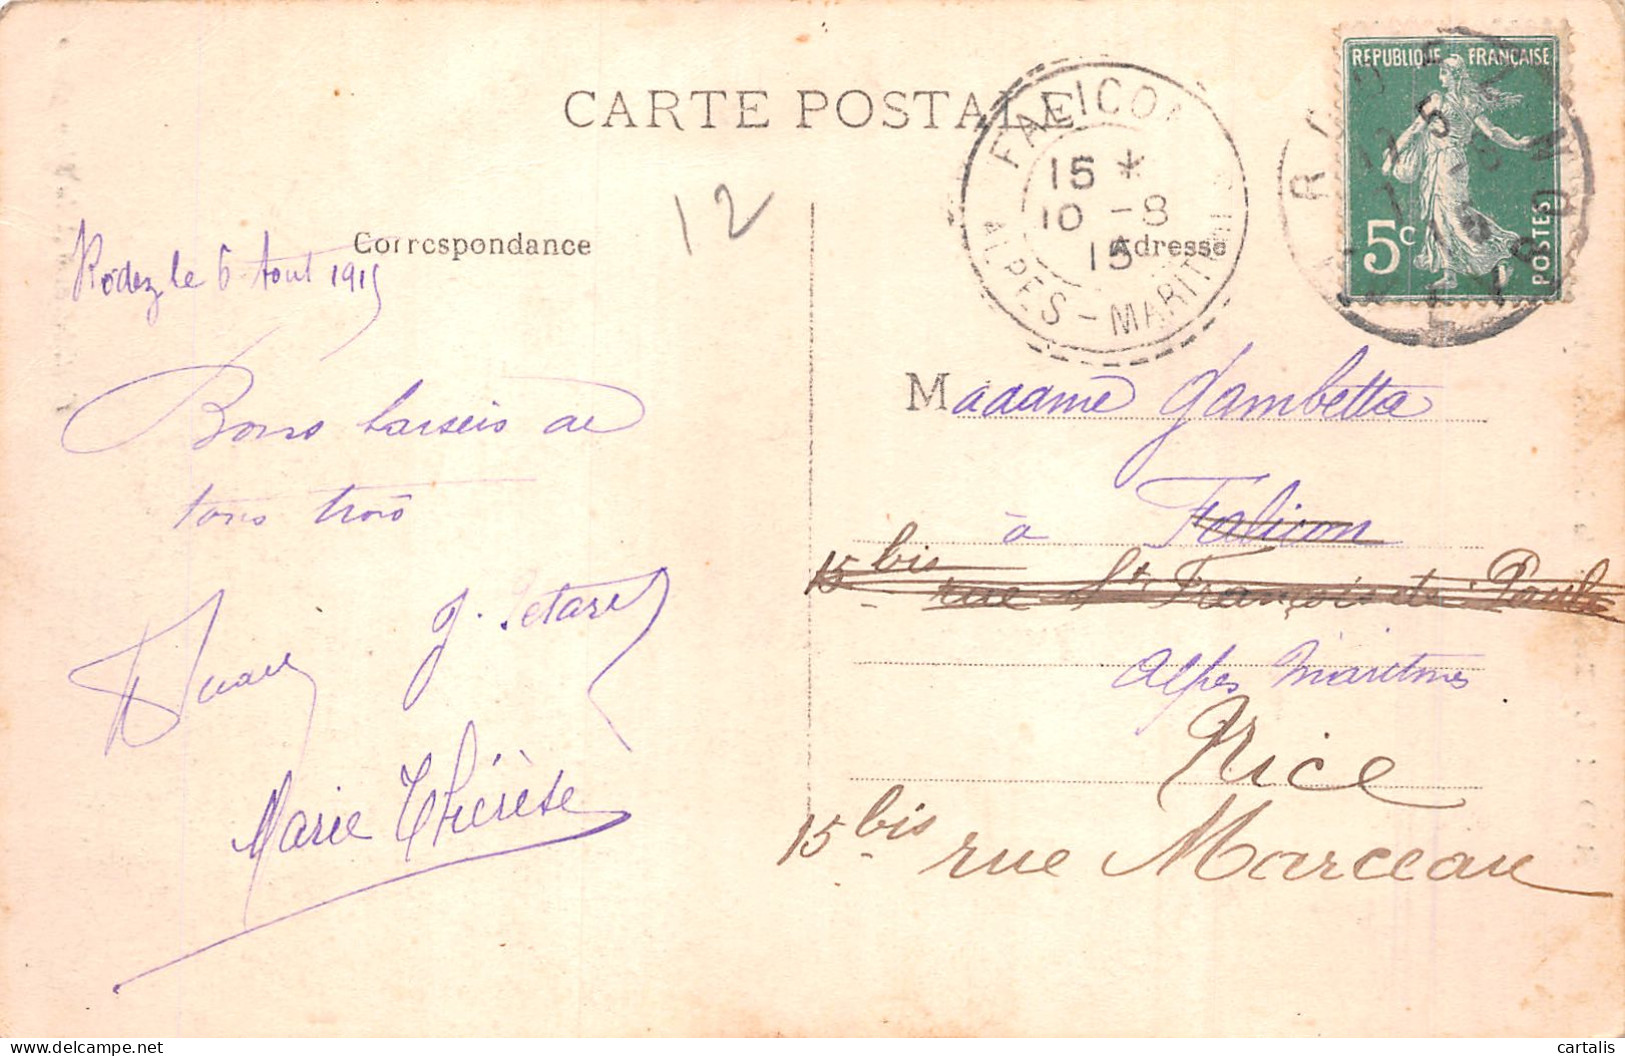 CARTE POSTALE
RÉPUBLIQUE FRANÇAISE
5c
POSTES
FALICON
15 *
10 -8
15
ALPES-MARITIMES
12
Correspondance
Adresse
Rodez le 6 Aout 1915
Bons baisers de
tous trois
Marie Thérèse
Madame Gambetta
à Falicon
15 bis rue St François de Paule
Alpes Maritimes
Nice
15 bis rue Marceau
cartalis